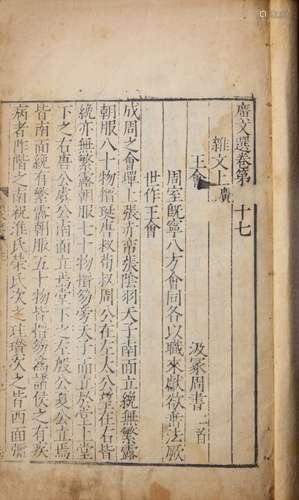 廣文選卷第十七
雜文上廣
王會 汲冢周書一首
周室既寧八方會同各以職來獻欲垂法厥
世作王會
成周之會墠上張赤帟張陰羽天子南面立絻無繁露
朝服八十物搢珽唐叔荀叔周公在左太公望在右皆
絻亦無繁露朝服七十物搢笏旁天子而立於堂上堂
下之右唐公虞公南面立焉堂下之左殷公夏公立焉
皆南面絻有繁露朝服五十物皆搢笏為諸侯之有疾
病者阼階之南祝淮氏榮氏次之珪瓚次之皆西面張